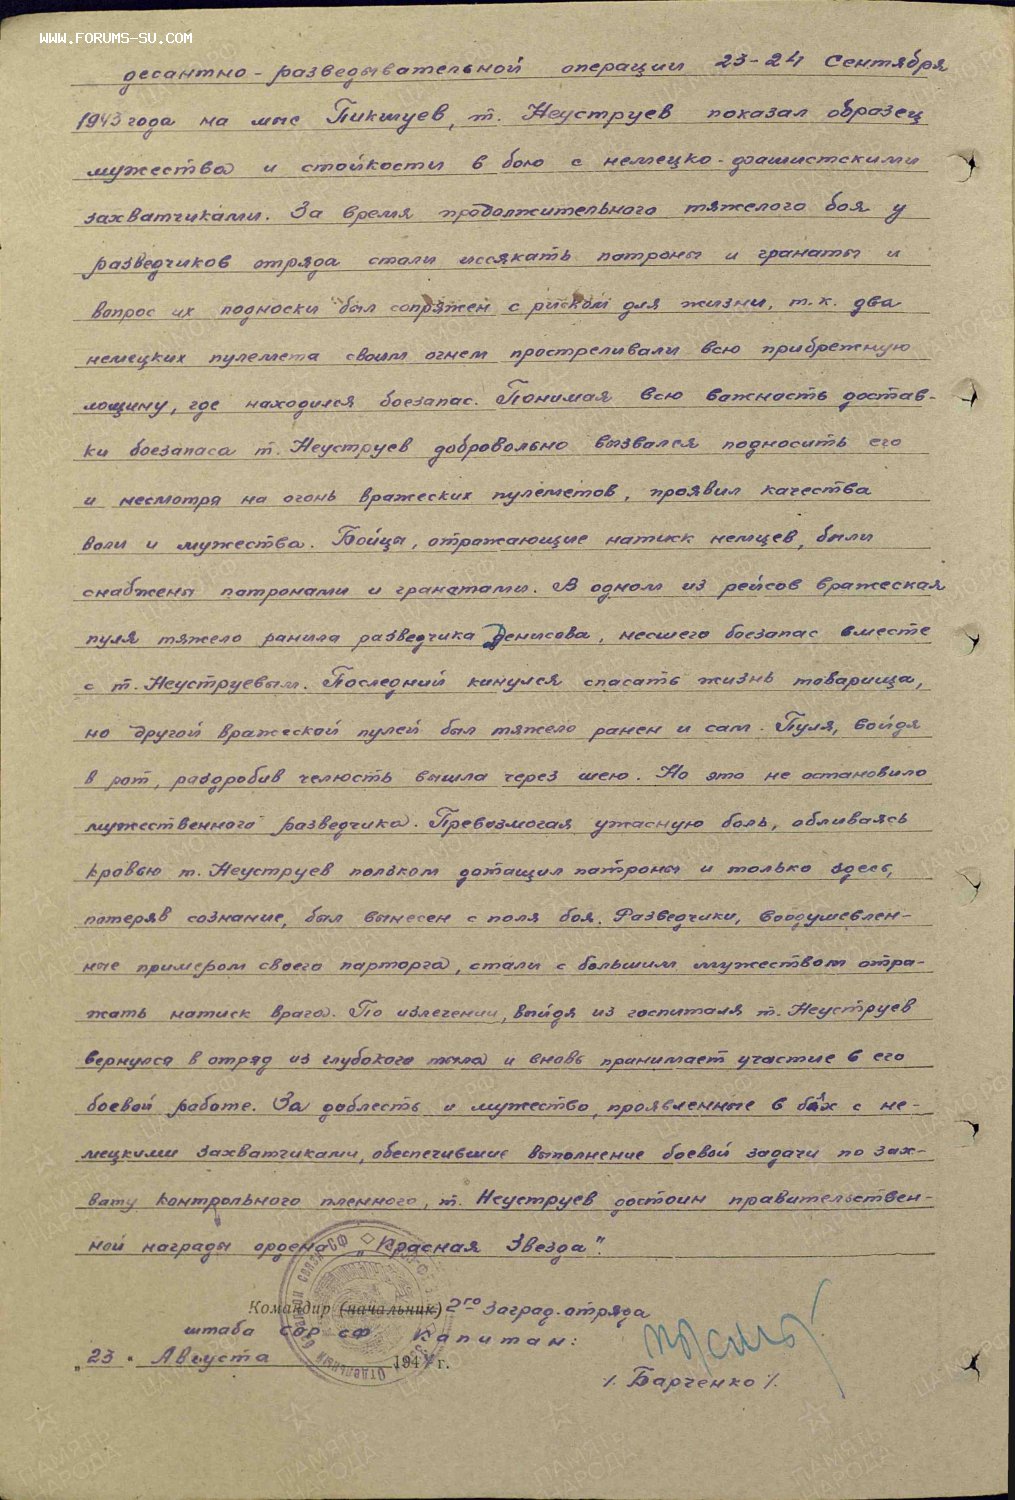 WWW.FORUMS-SU.COM
десантно-разведывательной операции 23-24 Сентября
1943 года на мыс Пикшуев, т. Неуструев показал образец
мужества и стойкости в бою с немецко-фашистскими
захватчиками. За время продолжительного тяжелого боя у
разведчиков отряда стали иссякать патроны и гранаты и
вопрос их подноски был сопряжен с риском для жизни, т.к. два
немецких пулемета своим огнем простреливали всю прибрежную
лощину, где находился боезапас. Понимая всю важность достав-
ки боезапаса т. Неуструев добровольно вызвался подносить его
и несмотря на огонь вражеских пулеметов, проявил качества
воли и мужества. Бойцы, отражающие натиск немцев, были
снабжены патронами и гранатами. В одном из рейсов вражеская
пуля тяжело ранила разведчика Денисова, несшего боезапас вместе
с т. Неуструевым. Последний кинулся спасать жизнь товарища,
но другой вражеской пулей был тяжело ранен и сам. Пуля, войдя
в рот, раздробив челюсть вышла через шею. Но это не остановило
мужественного разведчика. Превозмогая ужасную боль, обливаясь
кровью т. Неуструев ползком дотащил патроны и только здесь,
потеряв сознание, был вынесен с поля боя. Разведчики, воодушевлен-
ные примером своего парторга, стали с большим мужеством отра-
жать натиск врага. По излечении, выйдя из госпиталя т. Неуструев
вернулся в отряд из глубокого тыла и вновь принимает участие в его
боевой работе. За доблесть и мужество, проявленные в боях с не-
мецкими захватчиками, обеспечившие выполнение боевой задачи по зах-
вату контрольного пленного, т. Неуструев достоин правительствен-
ной награды ордена „Красная Звезда".
Командир (начальник) 2го Заград. отряда
штаба СОР СФ Капитан:
„23" Августа 1944 г.
/. Барченко /.